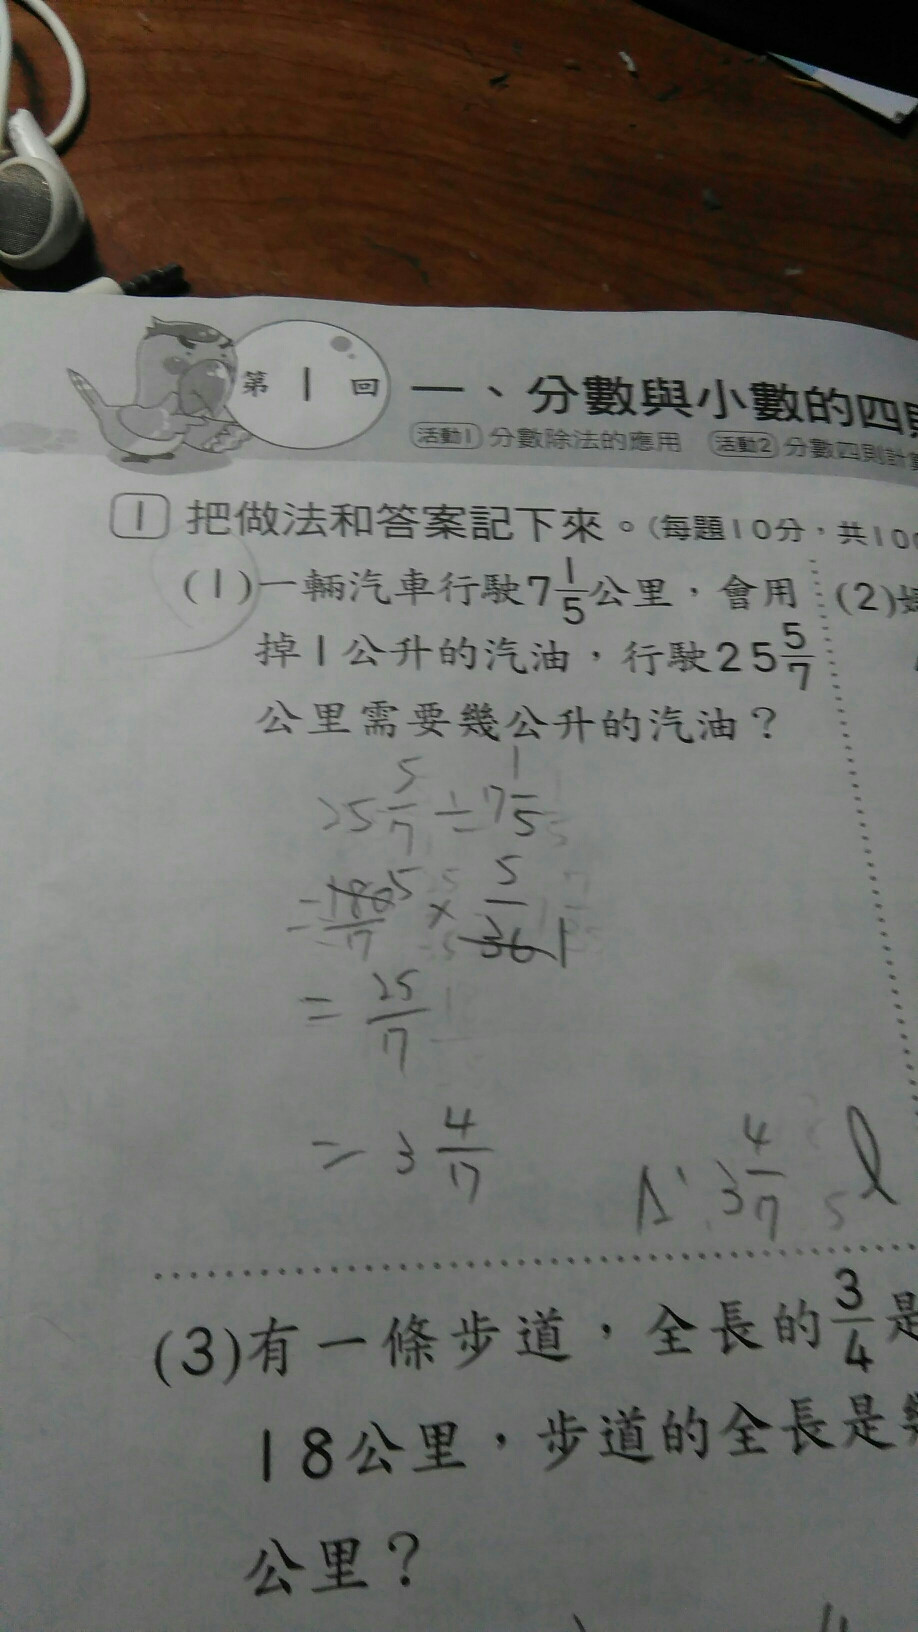 第1回
一、分數與小數的四則
活動1 分數除法的應用 活動2 分數四則計算
1 把做法和答案記下來。(每題10分,共100
(1)一輛汽車行駛7 1/5公里,會用
掉1公升的汽油,行駛25 5/7
公里需要幾公升的汽油?
25 5/7 ÷ 7 1/5
= 180/7 5 × 5/36 1
= 25/7
= 3 4/7
A: 3 4/7 l
(2)
(3)有一條步道,全長的3/4是
18公里,步道的全長是幾
公里?